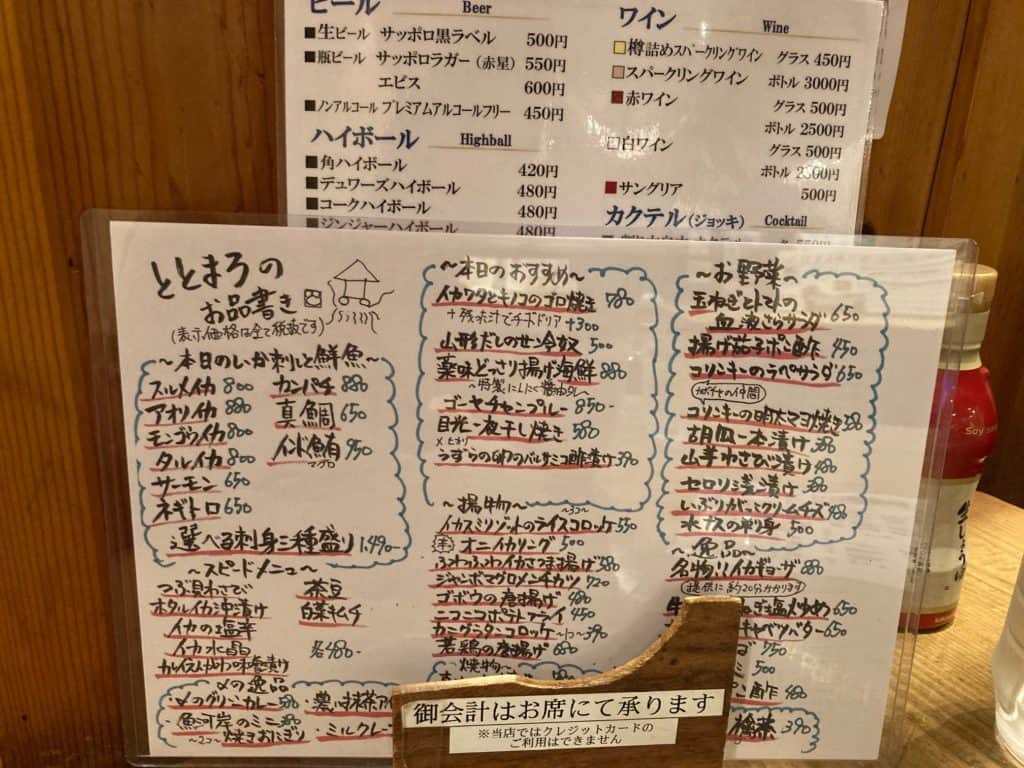 ビール Beer
■生ビール サッポロ黒ラベル 500円
■瓶ビール サッポロラガー(赤星) 550円
エビス 600円
■ノンアルコール プレミアムアルコールフリー 450円
ハイボール Highball
■角ハイボール 420円
■デュワーズハイボール 480円
■コークハイボール 480円
■ジンジャーハイボール 480円
ワイン Wine
□樽詰めスパークリングワイン グラス 450円
□スパークリングワイン ボトル 3000円
■赤ワイン グラス 500円
ボトル 2500円
□白ワイン グラス 500円
ボトル 2500円
■サングリア 500円
カクテル(ジョッキ) Cocktail
ととまろの
お品書き
(表示価格は全て税抜です)
〜本日のいか刺しと鮮魚〜
スルメイカ 800
アオリイカ 880
モンゴウイカ 800
タルイカ 800
サーモン 650
ネギトロ 650
カンパチ 880
真鯛 650
インド鮪 950
マグロ
選べる刺身三種盛り 1,490-
〜スピードメニュー〜
つぶ貝わさび
ホタルイカ沖漬け
イカの塩辛
イカ水晶
カレイえんがわの梅漬け
茶豆
白菜キムチ
各480-
〆の逸品
・〆のグリーンカレー 580
・魚河岸のミニ 380
〜2コ〜 焼きおにぎり
・濃い抹茶アイ
・ミルクレー
〜本日のおすすめ〜
イカワタとキノコのゴロ焼き 780
+残った汁でチーズドリア +300
山形だしのせ冷奴 500
薬味どっさり揚げ海鮮 880
〜特製にんにく醤油ダレ〜
ゴーヤチャンプルー 850-
目光一夜干し焼き 580
メヒカリ
うずらの卵のバルサミコ酢漬け 390
〜揚物〜
イカスミリゾットのライスコロッケ 〜3コ〜 550
オニイカリング 500
ふわふわイカさつま揚げ 580
ジャンボマグロメンチカツ 720
ゴボウの唐揚げ 480
ニコニコポテトフライ 450
カニグラタンコロッケ 〜1コ〜 390
若鶏の唐揚げ 680
〜焼物〜
〜お野菜〜
玉ねぎとトマトの
血液さらサラダ 650
揚げ茄子ポン酢 450
コリンキーのラペサラダ 650
カボチャの仲間
コリンキーの明太マヨ焼き 580
胡瓜一本漬け 380
山芋わさび漬け 480
セロリ浅漬け 380
いぶりがっこクリームチーズ 480
水ナスの刺身 500
〜逸品〜
名物!!イカギョーザ 880
提供に約20分かかります
ねぎ塩炒め 650
キャベツバター 650
750
500
ポン酢 480
390
御会計はお席にて承ります
※当店ではクレジットカードの
ご利用はできません